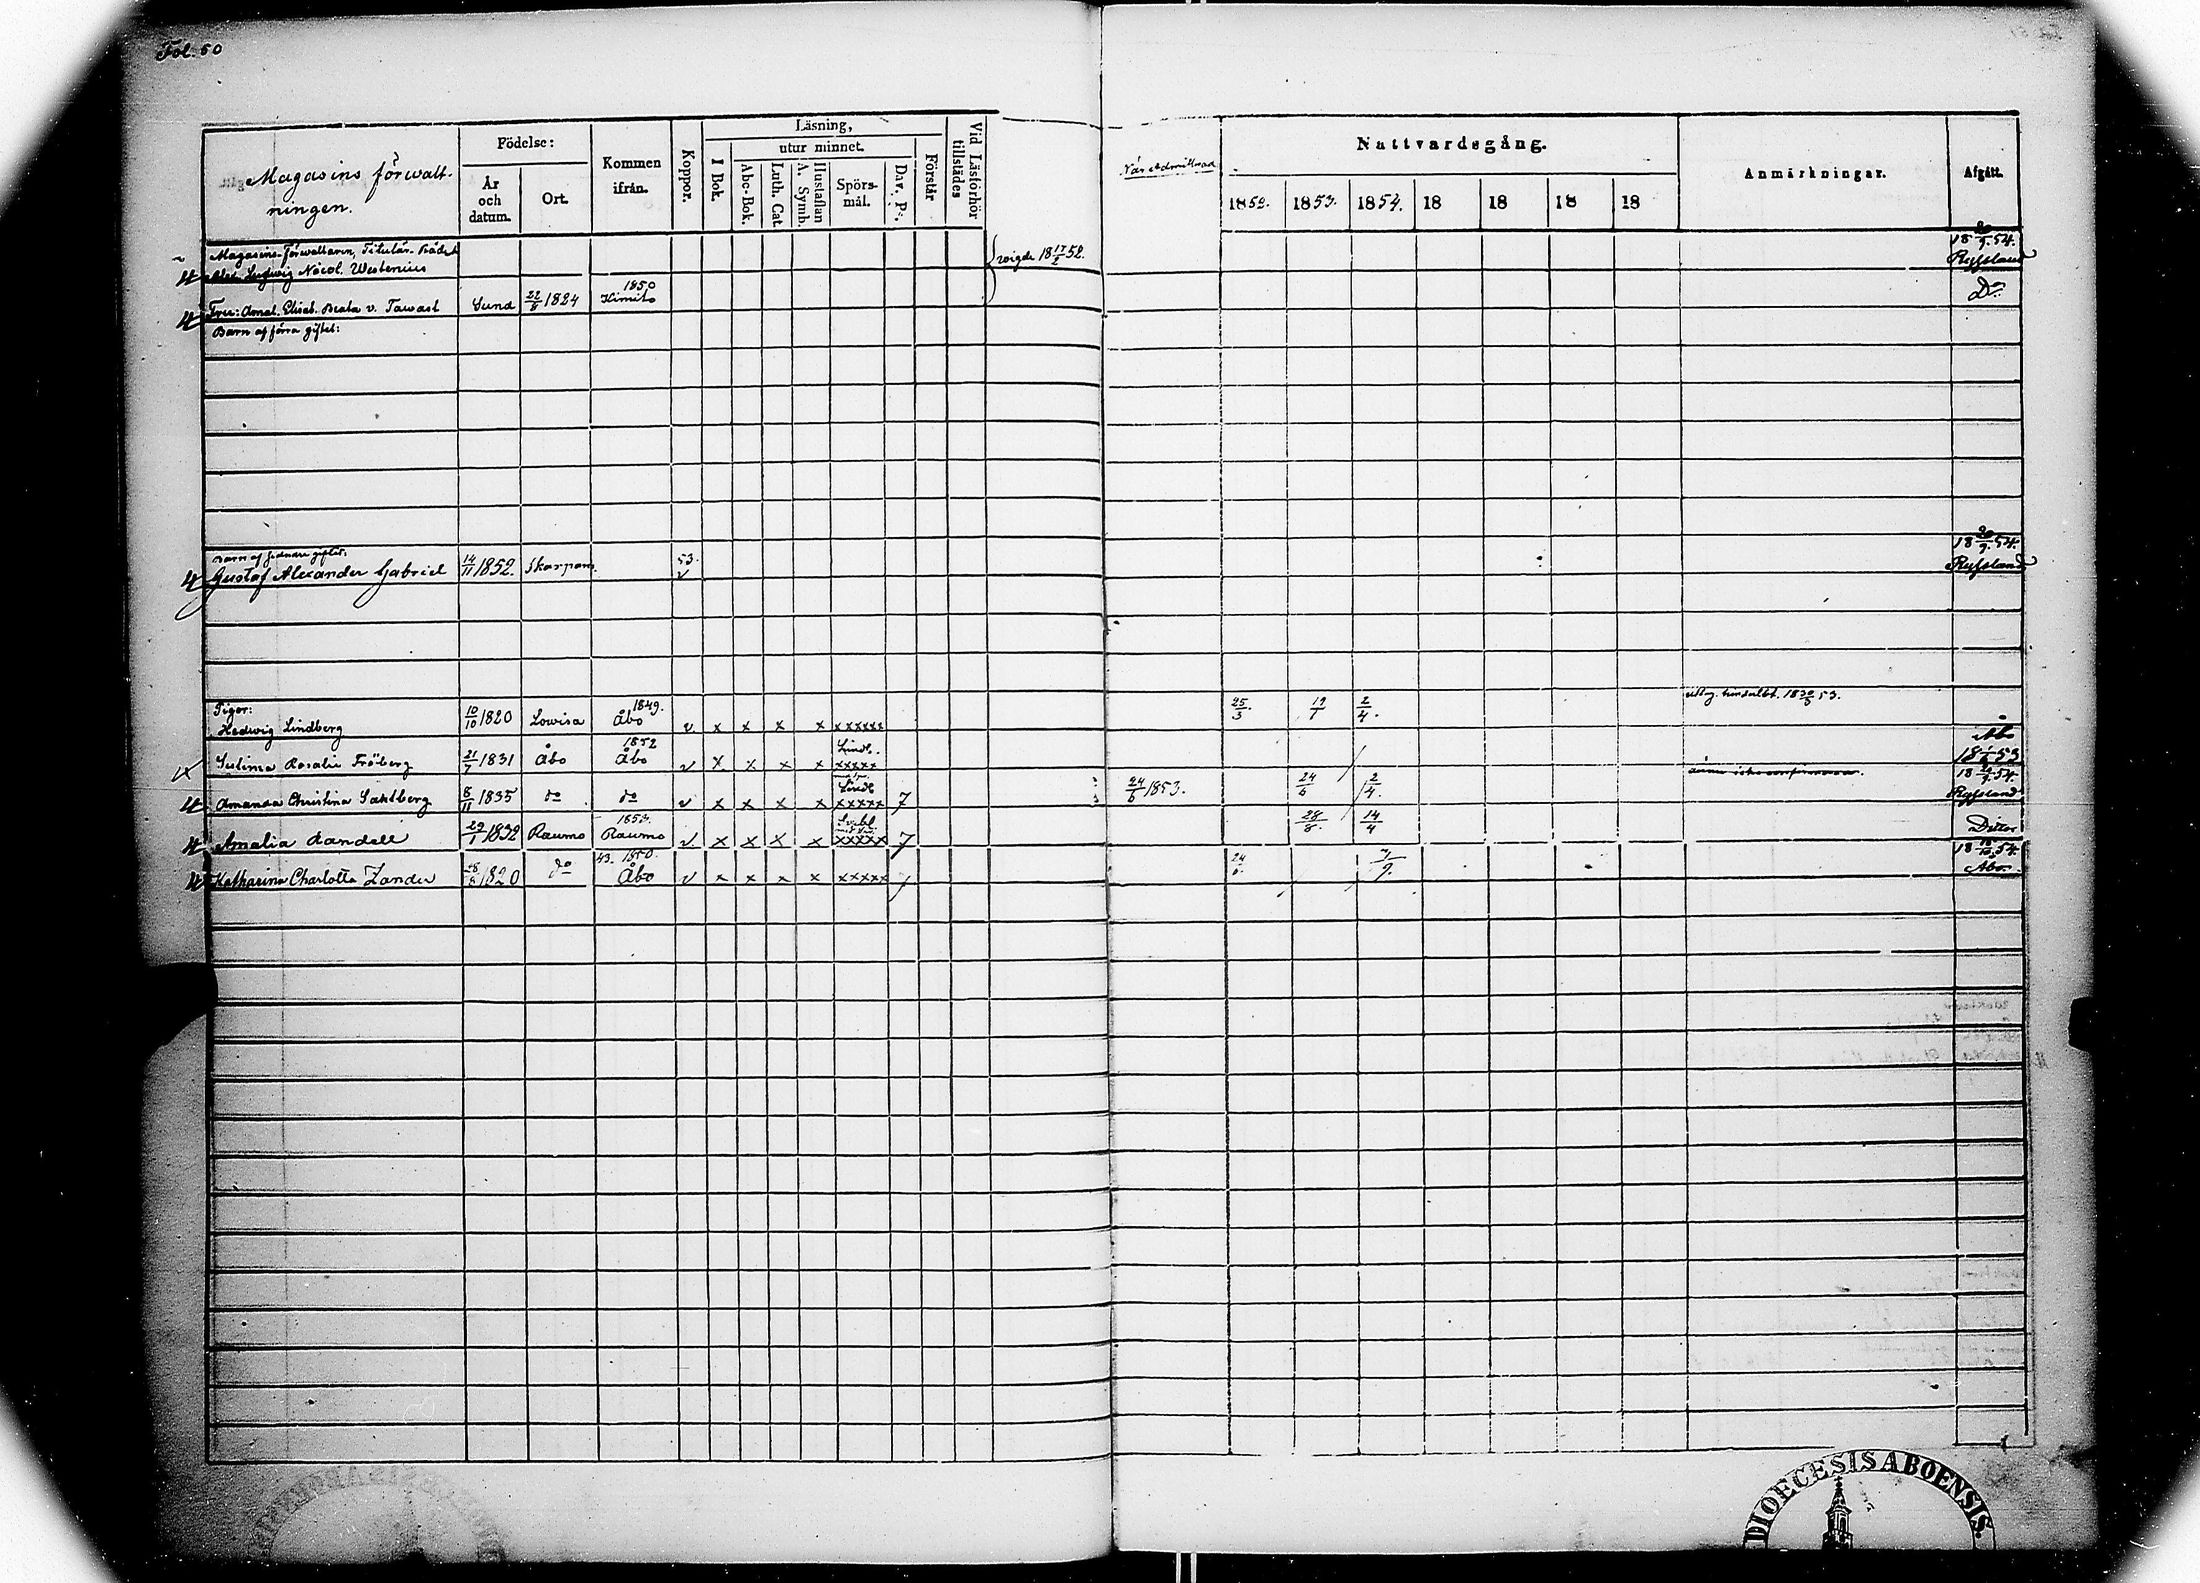 Fol. 50
Magasins förvalt-
ningen.
Födelse:
År och datum.
Ort.
Kommen ifrån.
Koppor.
Läsning,
utur minnet.
I Bok.
Abc-Bok.
Luth. Cat.
A. Symb.
Hustaflan
Spörs-mål.
Dav. Ps.
Förstår
Vid Läsförhör tillstädes
När admitterad
Nattvardsgång.
1852. 1853. 1854. 18 18 18 18
Anmärkningar.
Afgått.
Magasins-Förvaltaren, Titulär-Rådet
Ludwig Nicol. Westenius
vigde 18 17/2 52.
18 20/9 54.
Ryssland
Fru: Amal. Elisab. Beata v. Tawast Sund 22/8 1824 1850 Kimito
Do
Barn af förra giftet:
Barn af sednare giftet:
Gustaf Alexander Gabriel 14/11 1852. Skarpans. 53. v
18 20/9 54.
Ryssland
Pigor:
Hedwig Lindberg 10/10 1820 Lowisa 1849. Åbo v x x x x xxxxxx 25/3 19/1 2/4.
Rosalie Fröberg 21/7 1831 Åbo 1852 Åbo v x x x x xxxxx
Åbo
Amanda Christina Sahlberg 8/11 1835 do do v x x x x xxxxx 7 24/6 1853. 24/6 2/4.
18 20/9 54.
Ryssland
Amalia Randell 29/1 1832 Raumo 1853. Raumo v x x x x xxxxx 7 28/8. 14/4
Ditto
Katharina Charlotta Zander 1820 do 43. 1850. Åbo v x x x x xxxxx
Åbo.
DIOECESIS ABOENSIS.